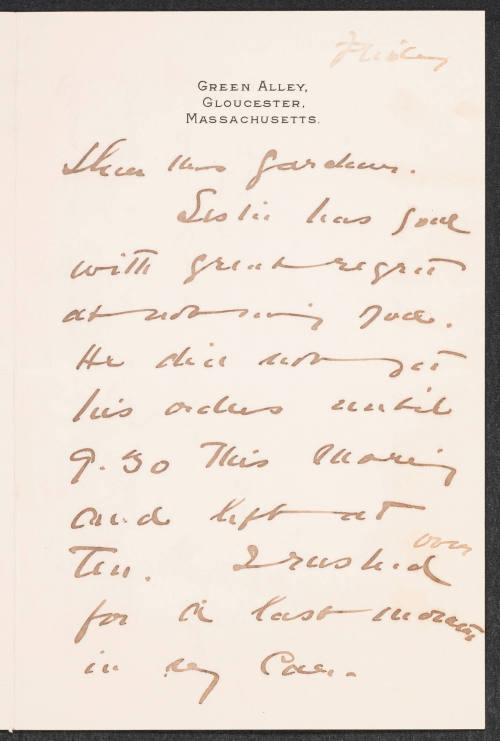 Friday
GREEN ALLEY,
GLOUCESTER,
MASSACHUSETTS.
Dear Mrs Gardner.
Leslie has gone
with great regret
at not seeing you.
He did not get
his orders until
9.30 this morning
and left at
Ten. I rushed over
for a last moment
in my Car.